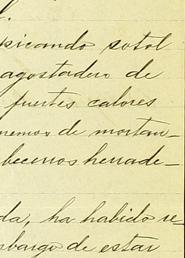 picando sotol
agostadero de
fuertes calores
nemos de mortan-
becerros herrade-
da, ha habido re-
mbargo de estar